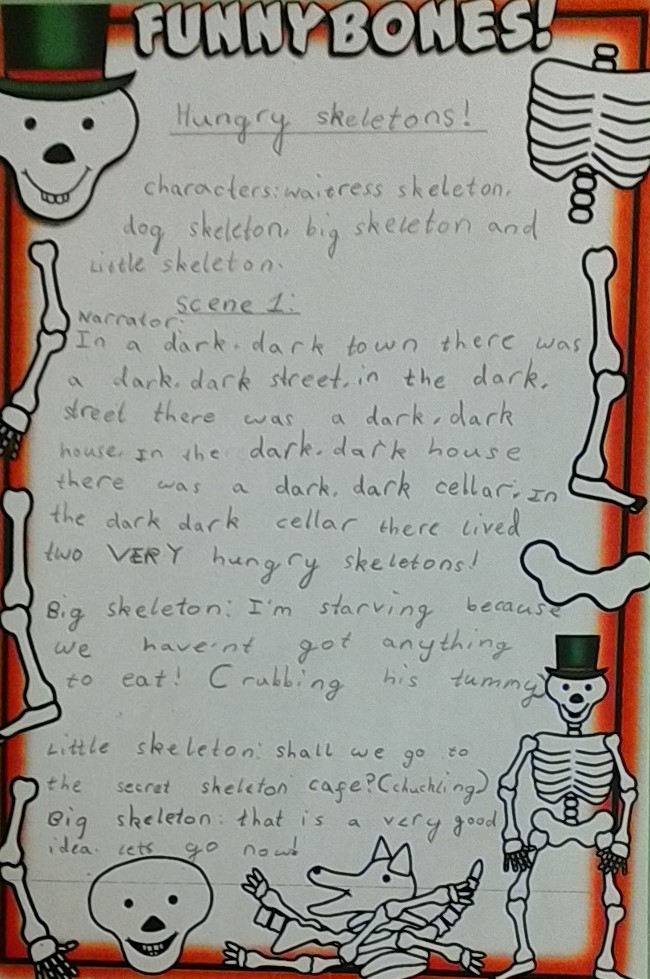 FUNNYBONES!
Hungry skeletons!
characters: waitress skeleton,
dog skeleton, big skeleton and
Little skeleton.
Scene 1:
Narrator:
In a dark, dark town there was
a dark, dark street, in the dark,
street there was a dark, dark
house. In the dark, dark house
there was a dark, dark cellar. In
the dark dark cellar there lived
two VERY hungry skeletons!
Big skeleton: I'm starving because
we have'nt got anything
to eat! (rubbing his tummy)
Little skeleton: shall we go to
the secret skeleton cafe? (chuckling)
Big skeleton: that is a very good
idea. Lets go now!